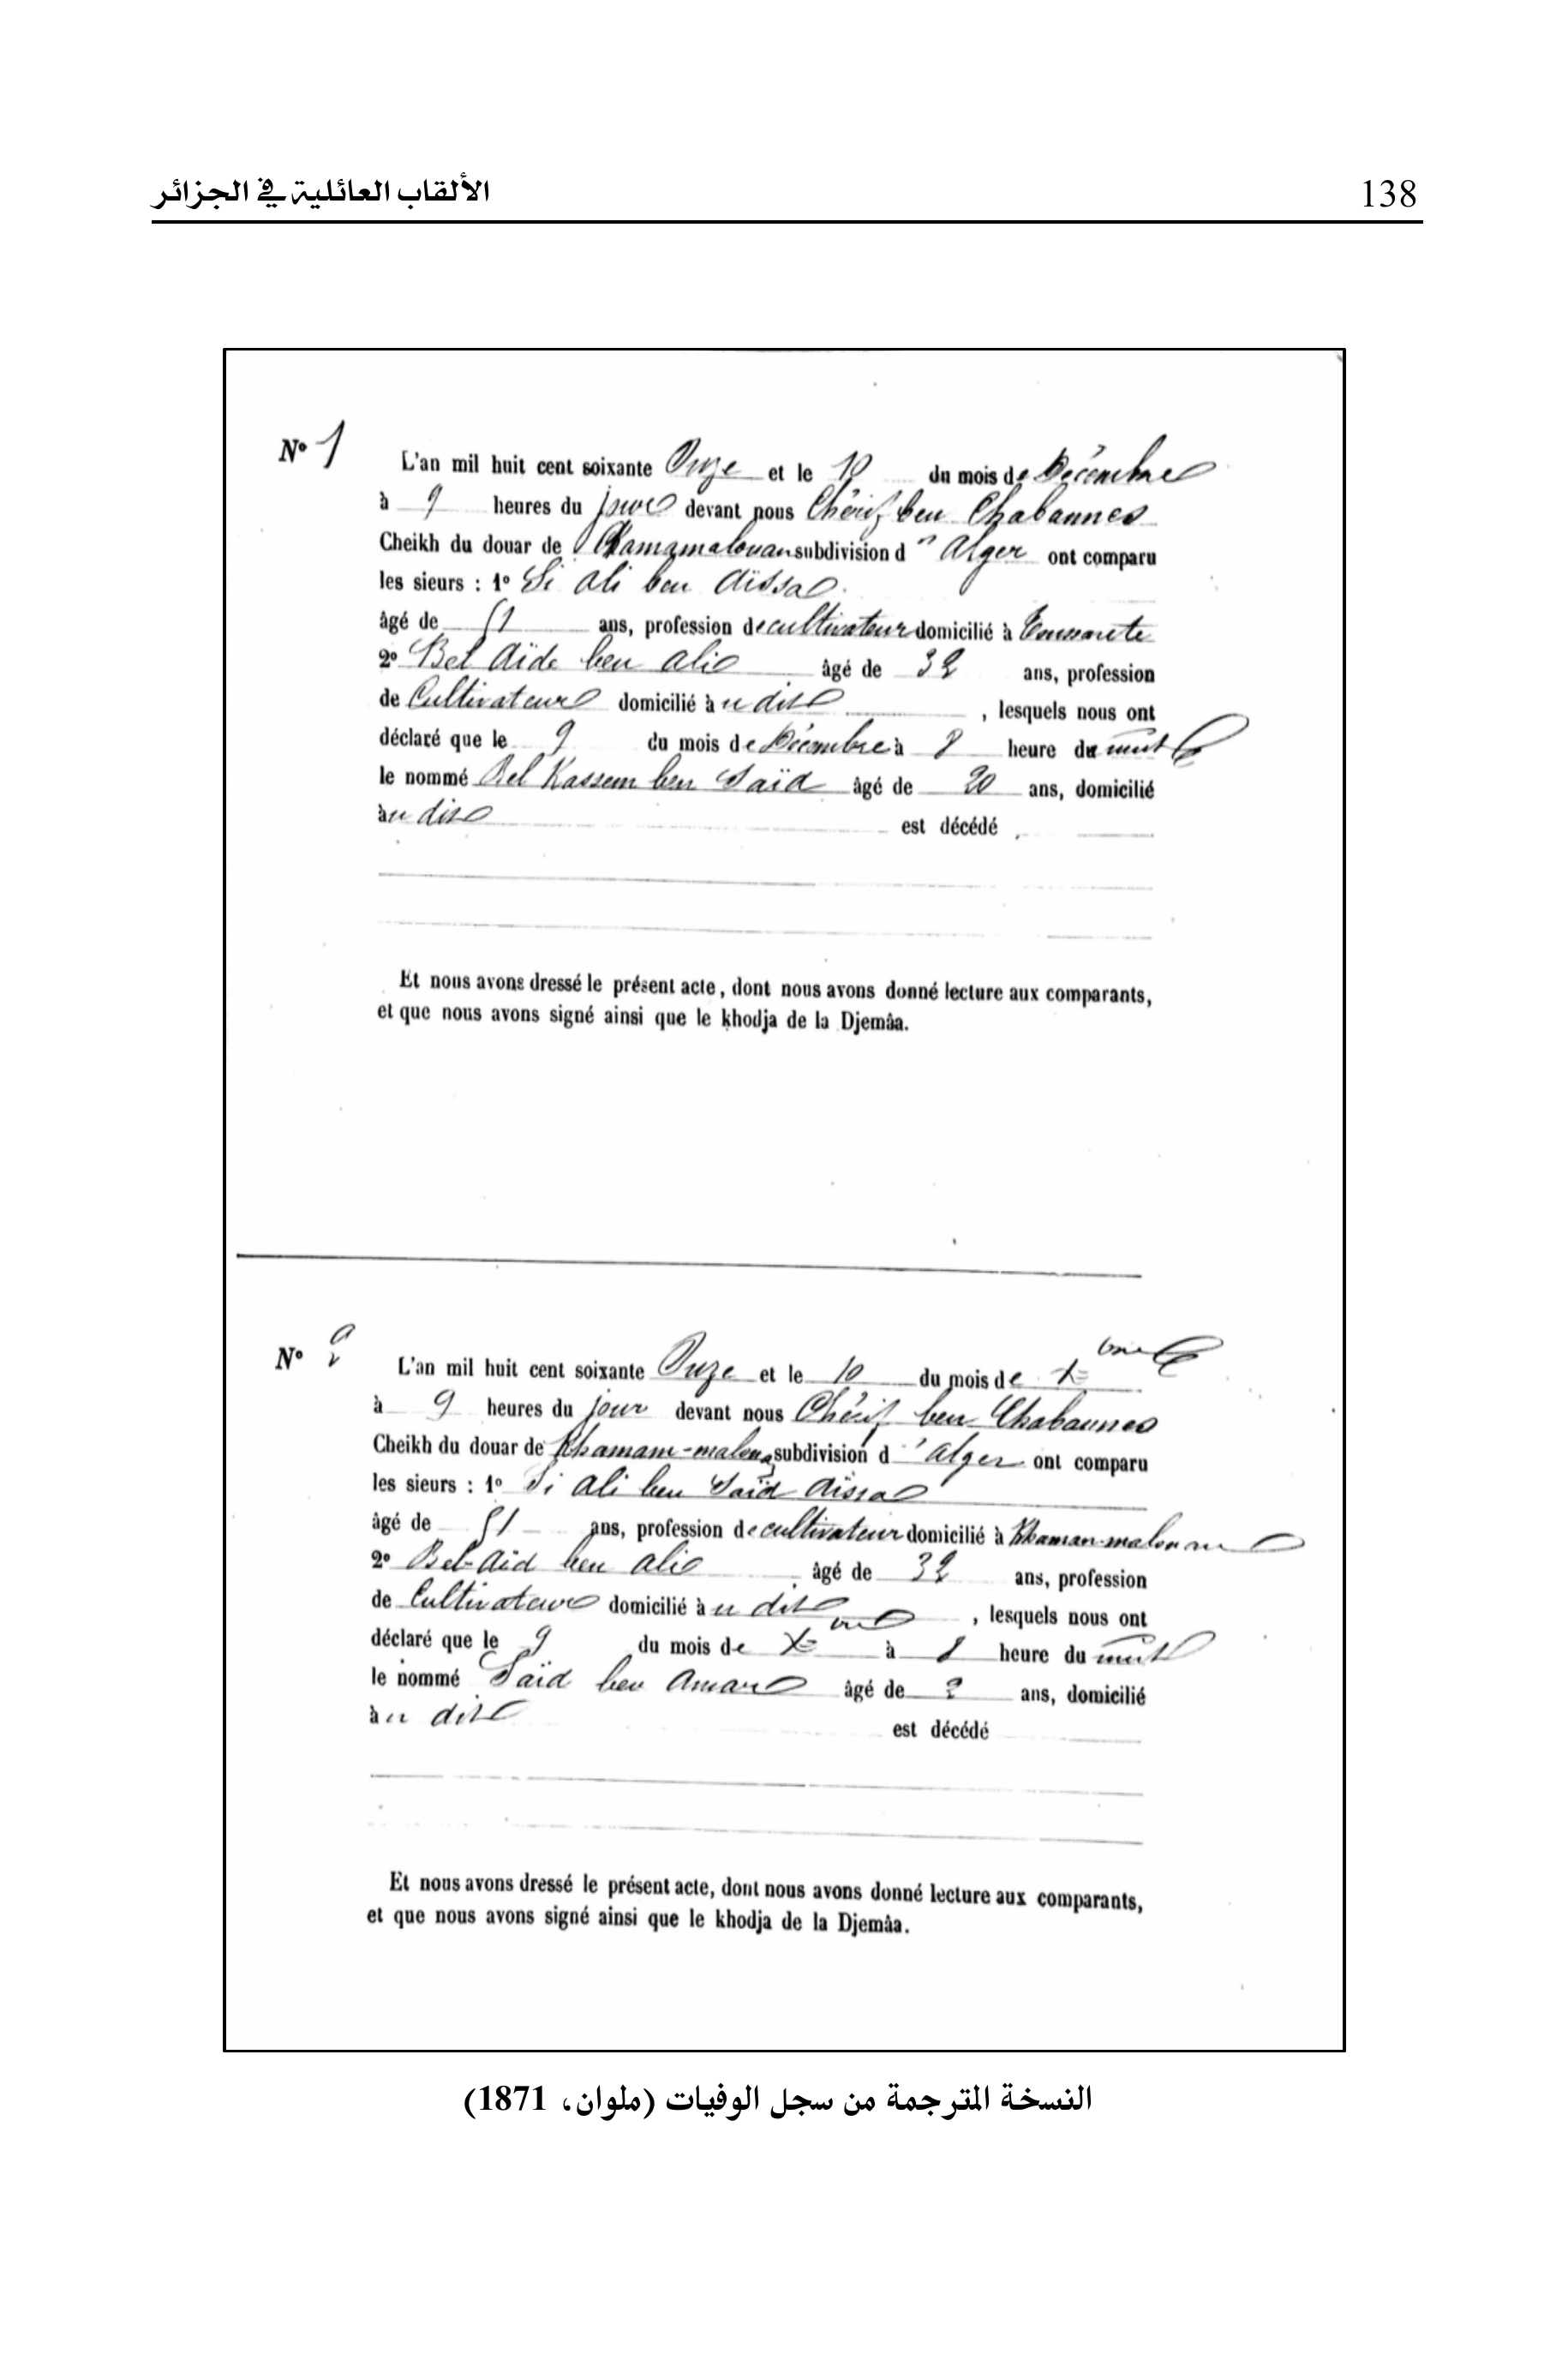 138
الألقاب العائلية في الجزائر
N° 1
L'an mil huit cent soixante Onze et le 10 du mois de Décembre
à 9 heures du jour devant nous Chérif ben Chabannes
Cheikh du douar de Khamamalouan subdivision d'Alger ont comparu
les sieurs : 1° Si Ali ben Aïssa
âgé de 51 ans, profession de cultivateur domicilié à
2° Bel Aïde ben Ali âgé de 32 ans, profession
de Cultivateur domicilié à u dit , lesquels nous ont
déclaré que le 9 du mois de Décembre à 8 heure du nuit
le nommé Bel Kassem ben Saïd âgé de 20 ans, domicilié
à u dit est décédé
Et nous avons dressé le présent acte, dont nous avons donné lecture aux comparants,
et que nous avons signé ainsi que le khodja de la Djemâa.
N° 2
L'an mil huit cent soixante Onze et le 10 du mois de Xbre
à 9 heures du jour devant nous Chérif ben Chabannes
Cheikh du douar de Khamam-malouan subdivision d'Alger ont comparu
les sieurs : 1° Si Ali ben Saïd Aïssa
âgé de 51 ans, profession de cultivateur domicilié à Khaman-malouan
2° Bel-Aid ben Ali âgé de 32 ans, profession
de Cultivateur domicilié à u dit , lesquels nous ont
déclaré que le 9 du mois de Xbre à 8 heure du nuit
le nommé Saïd ben Amar âgé de 2 ans, domicilié
à u dit est décédé
Et nous avons dressé le présent acte, dont nous avons donné lecture aux comparants,
et que nous avons signé ainsi que le khodja de la Djemâa.
النسخة المترجمة من سجل الوفيات (ملوان، 1871)